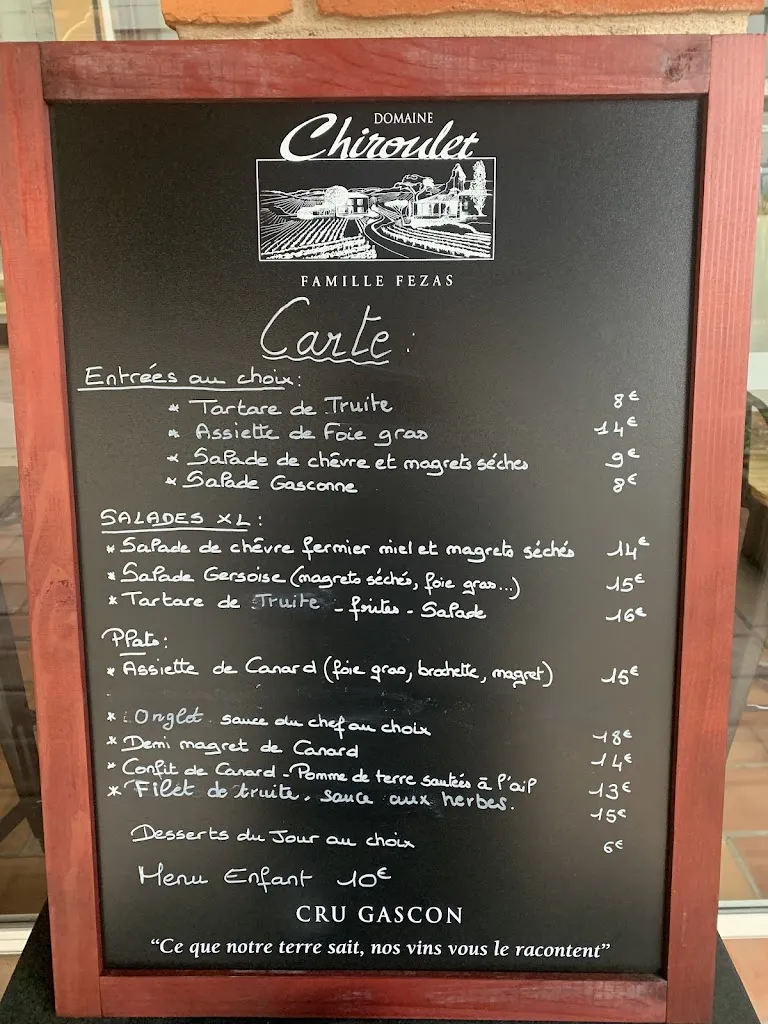 DOMAINE
Chiroulet
FAMILLE FEZAS
Carte :
Entrées au choix :
* Tartare de Truite 8€
* Assiette de Foie gras 14€
* Salade de chèvre et magrets séchés 9€
* Salade Gasconne 8€
SALADES XL :
* Salade de chèvre fermier miel et magrets séchés 14€
* Salade Gersoise (magrets séchés, foie gras...) 15€
* Tartare de Truite - frites - Salade 16€
Plats :
* Assiette de Canard (foie gras, brochette, magret) 15€
* Onglet sauce du chef au choix 18€
* Demi magret de Canard 14€
* Confit de Canard - Pomme de terre sautées à l'ail 13€
* Filet de truite. sauce aux herbes. 15€
Desserts du Jour au choix 6€
Menu Enfant 10€
CRU GASCON
“Ce que notre terre sait, nos vins vous le racontent”